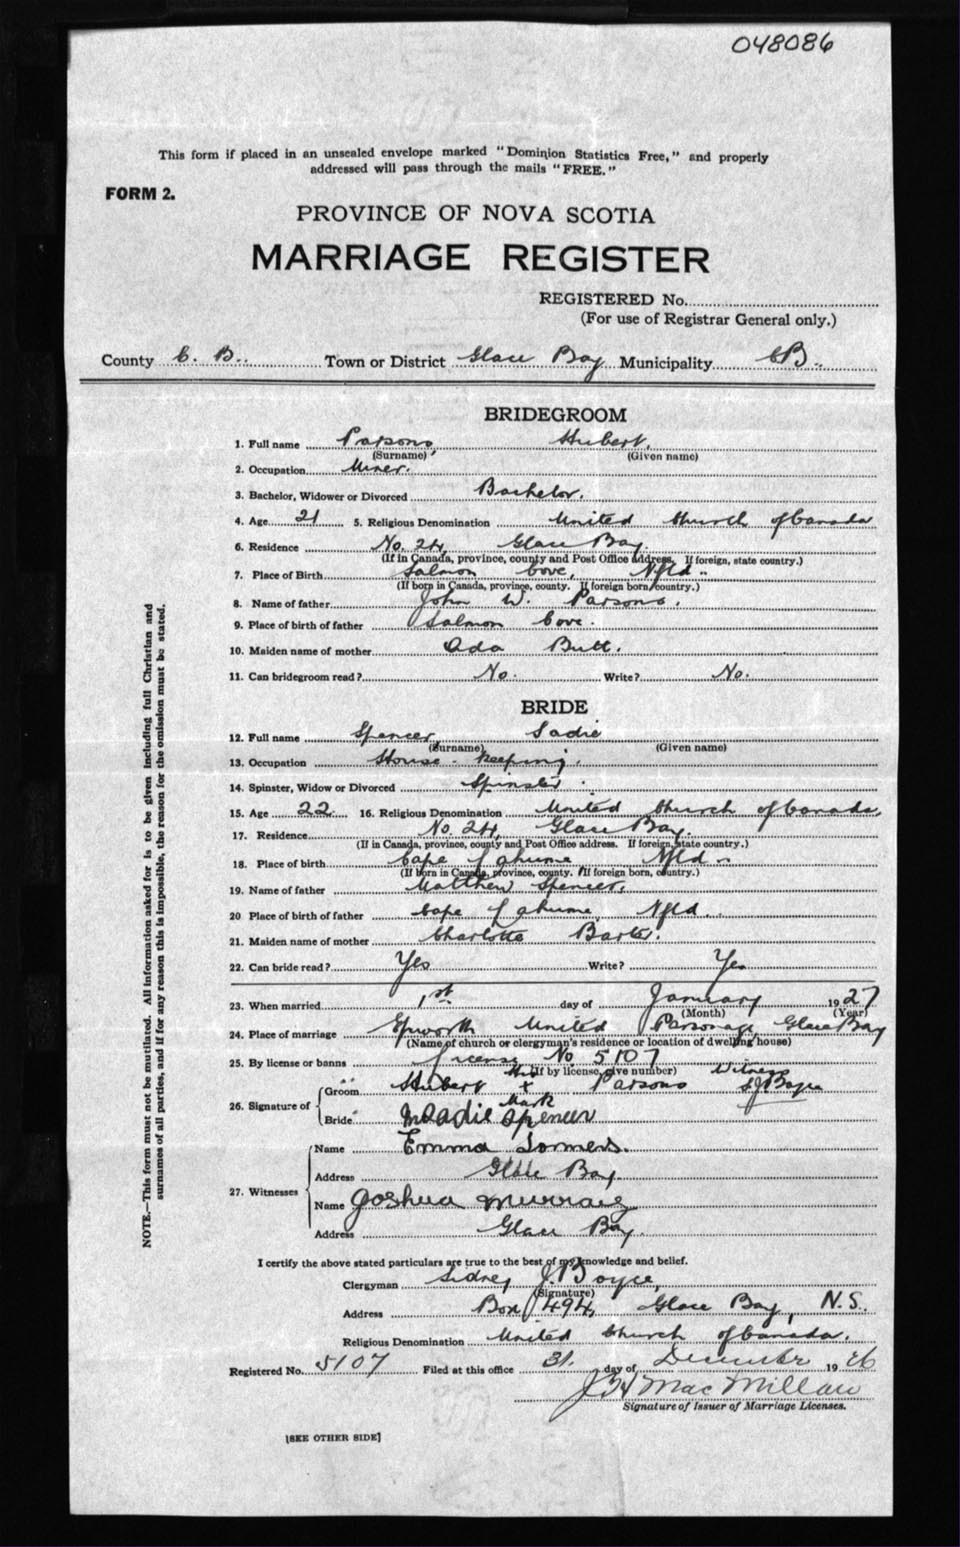 048086
This form if placed in an unsealed envelope marked "Dominion Statistics Free," and properly
addressed will pass through the mails "FREE."
FORM 2.
PROVINCE OF NOVA SCOTIA
MARRIAGE REGISTER
REGISTERED No.
(For use of Registrar General only.)
County C. B. Town or District Glace Bay Municipality CB
BRIDEGROOM
1. Full name Parsons, Hubert.
(Surname) (Given name)
2. Occupation Miner.
3. Bachelor, Widower or Divorced Bachelor.
4. Age 21 5. Religious Denomination United Church of Canada
6. Residence No. 24, Glace Bay
(If in Canada, province, county and Post Office address. If foreign, state country.)
7. Place of Birth Salmon Cove, Nfld
(If born in Canada, province, county. If foreign born, country.)
8. Name of father John W. Parsons.
9. Place of birth of father Salmon Cove.
10. Maiden name of mother Ada Butt.
11. Can bridegroom read? No. Write? No.
BRIDE
12. Full name Spencer, Sadie
(Surname) (Given name)
13. Occupation House-keeping.
14. Spinster, Widow or Divorced Spinster.
15. Age 22 16. Religious Denomination United Church of Canada.
17. Residence No. 24, Glace Bay.
(If in Canada, province, county and Post Office address. If foreign, state country.)
18. Place of birth Cape Lahume Nfld
(If born in Canada, province, county. If foreign born, country.)
19. Name of father Matthew Spencer.
20 Place of birth of father Cape Lahume, Nfld.
21. Maiden name of mother Charlotte
22. Can bride read? Yes Write? Yes
23. When married 1st day of January 1927
(Month) (Year)
24. Place of marriage Epworth United Parsonage, Glace Bay
(Name of church or clergyman's residence or location of dwelling house)
25. By license or banns License No 5107
(If by license, give number) Witness
26. Signature of Groom Hubert His x Mark Parsons SJBoyce
Bride Sadie Spencer
27. Witnesses
Name Emma Sommers.
Address Glace Bay
Name Joshua Murray
Address Glace Bay.
I certify the above stated particulars are true to the best of my knowledge and belief.
Clergyman Sidney J. Boyce,
(Signature)
Address Box 494, Glace Bay, N.S.
Religious Denomination United Church of Canada.
Registered No. 5107 Filed at this office 31. day of December 1926
J MacMillan
Signature of Issuer of Marriage Licenses.
[SEE OTHER SIDE]
NOTE.—This form must not be mutilated. All information asked for is to be given including full Christian and
surnames of all parties, and if for any reason this is impossible, the reason for the omission must be stated.